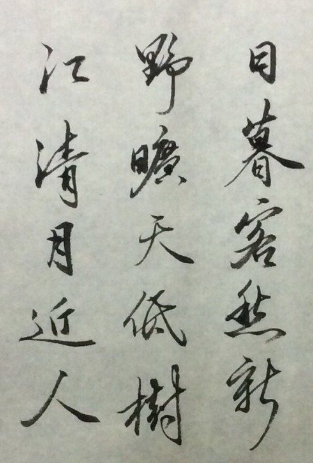 日暮客愁新
野曠天低樹
江清月近人